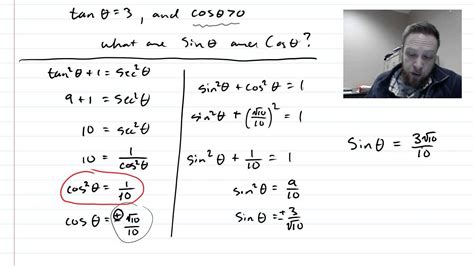 tan θ = 3, and cos θ > 0
what are Sin θ and Cos θ?
tan²θ + 1 = sec²θ
9 + 1 = sec²θ
10 = sec²θ
10 = 1/cos²θ
cos²θ = 1/10
cos θ = ± √10/10
sin²θ + cos²θ = 1
sin²θ + (√10/10)² = 1
sin²θ + 1/10 = 1
sin²θ = 9/10
sin θ = ± 3/√10
Sin θ = 3√10/10